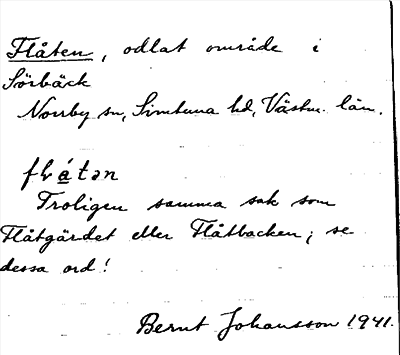 Flåten, odlat område i
Sörbäck
Norrby sn, Simtuna hd, Västm. län.
flåtən
Troligen samma sak som
Flåtgärdet eller Flåtbacken; se
dessa ord!
Bernt Johansson 1941.